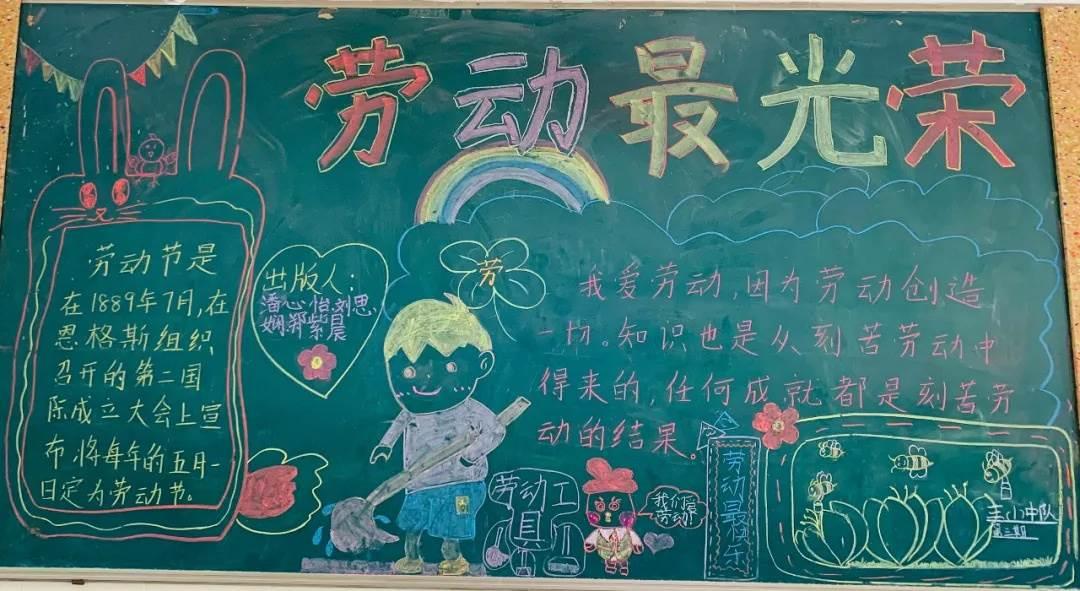 劳动最光荣
劳动节是
在1889年7月,在
恩格斯组织
召开的第二国
际成立大会上宣
布,将每年的五月一
日定为劳动节。
出版人:
潘心怡.刘思
娴.郑紫晨
劳
我爱劳动,因为劳动创造
一切。知识也是从刻苦劳动中
得来的,任何成就都是刻苦劳
动的结果。
劳动工
具
我们爱
劳动!
劳动最快乐
三小中队
第三期